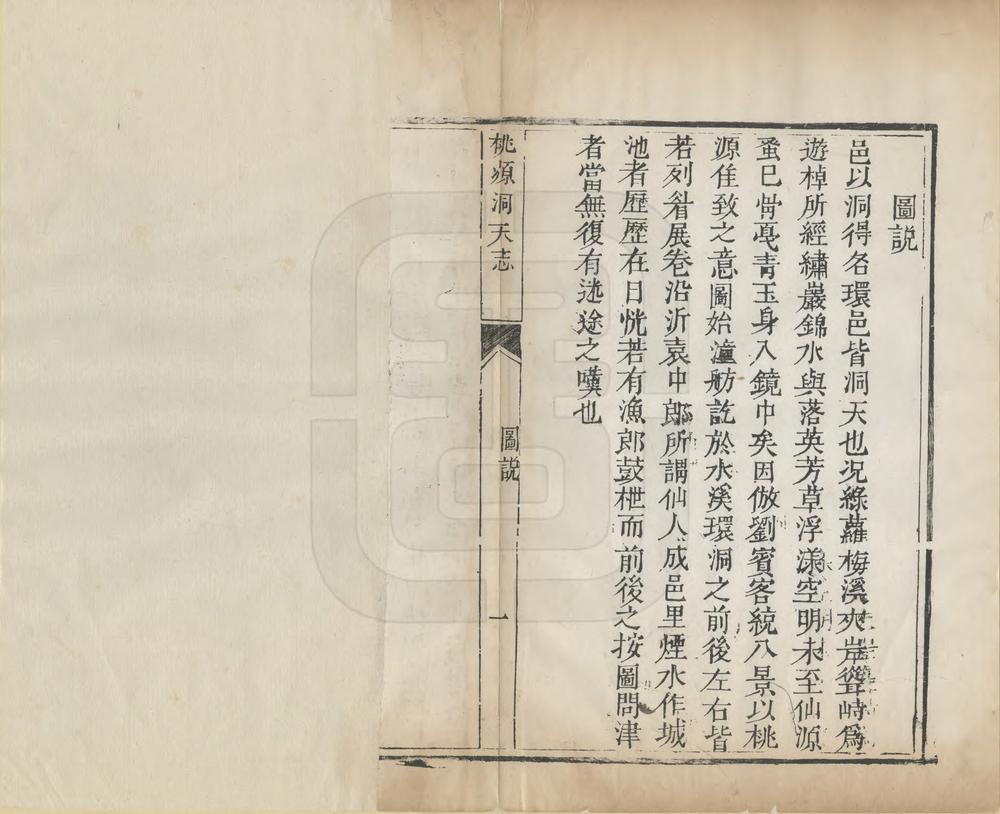 圖説
邑以洞得名環邑皆洞天也况綠蘿梅溪夾岸聳峙爲
遊棹所經繡巖錦水與落英芳草浮漾空明未至仙源
蚤已骨戞青玉身入鏡中矣因倣劉賓客統八景以桃
源佳致之意圖始潼舫訖於水溪環洞之前後左右皆
若列眉展卷沿沂袁中郎所謂仙人成邑里煙水作城
池者歷歷在目恍若有漁郎鼓枻而前後之按圖問津
者當無復有迷途之嘆也
桃源洞天志
圖説
一